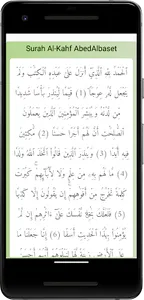 Surah Al-Kahf AbedAlbaset
ٱلْحَمْدُ لِلَّهِ ٱلَّذِىٓ أَنزَلَ عَلَىٰ عَبْدِهِ ٱلْكِتَٰبَ وَلَمْ
يَجْعَل لَّهُۥ عِوَجَا (1) قَيِّمًا لِّيُنذِرَ بَأْسًا شَدِيدًا
مِّن لَّدُنْهُ وَيُبَشِّرَ ٱلْمُؤْمِنِينَ ٱلَّذِينَ يَعْمَلُونَ
ٱلصَّٰلِحَٰتِ أَنَّ لَهُمْ أَجْرًا حَسَنًا (2) مَّٰكِثِينَ
فِيهِ أَبَدًا (3) وَيُنذِرَ ٱلَّذِينَ قَالُوا۟ ٱتَّخَذَ ٱللَّهُ وَلَدًا
(4) مَّا لَهُم بِهِۦ مِنْ عِلْمٍ وَلَا لِءَابَآئِهِمْ كَبُرَتْ
كَلِمَةً تَخْرُجُ مِنْ أَفْوَٰهِهِمْ إِن يَقُولُونَ إِلَّا كَذِبًا
(5) فَلَعَلَّكَ بَٰخِعٌ نَّفْسَكَ عَلَىٰٓ ءَاثَٰرِهِمْ إِن لَّمْ
يُؤْمِنُوا۟ بِهَٰذَا ٱلْحَدِيثِ أَسَفًا (6) إِنَّا جَعَلْنَا مَا